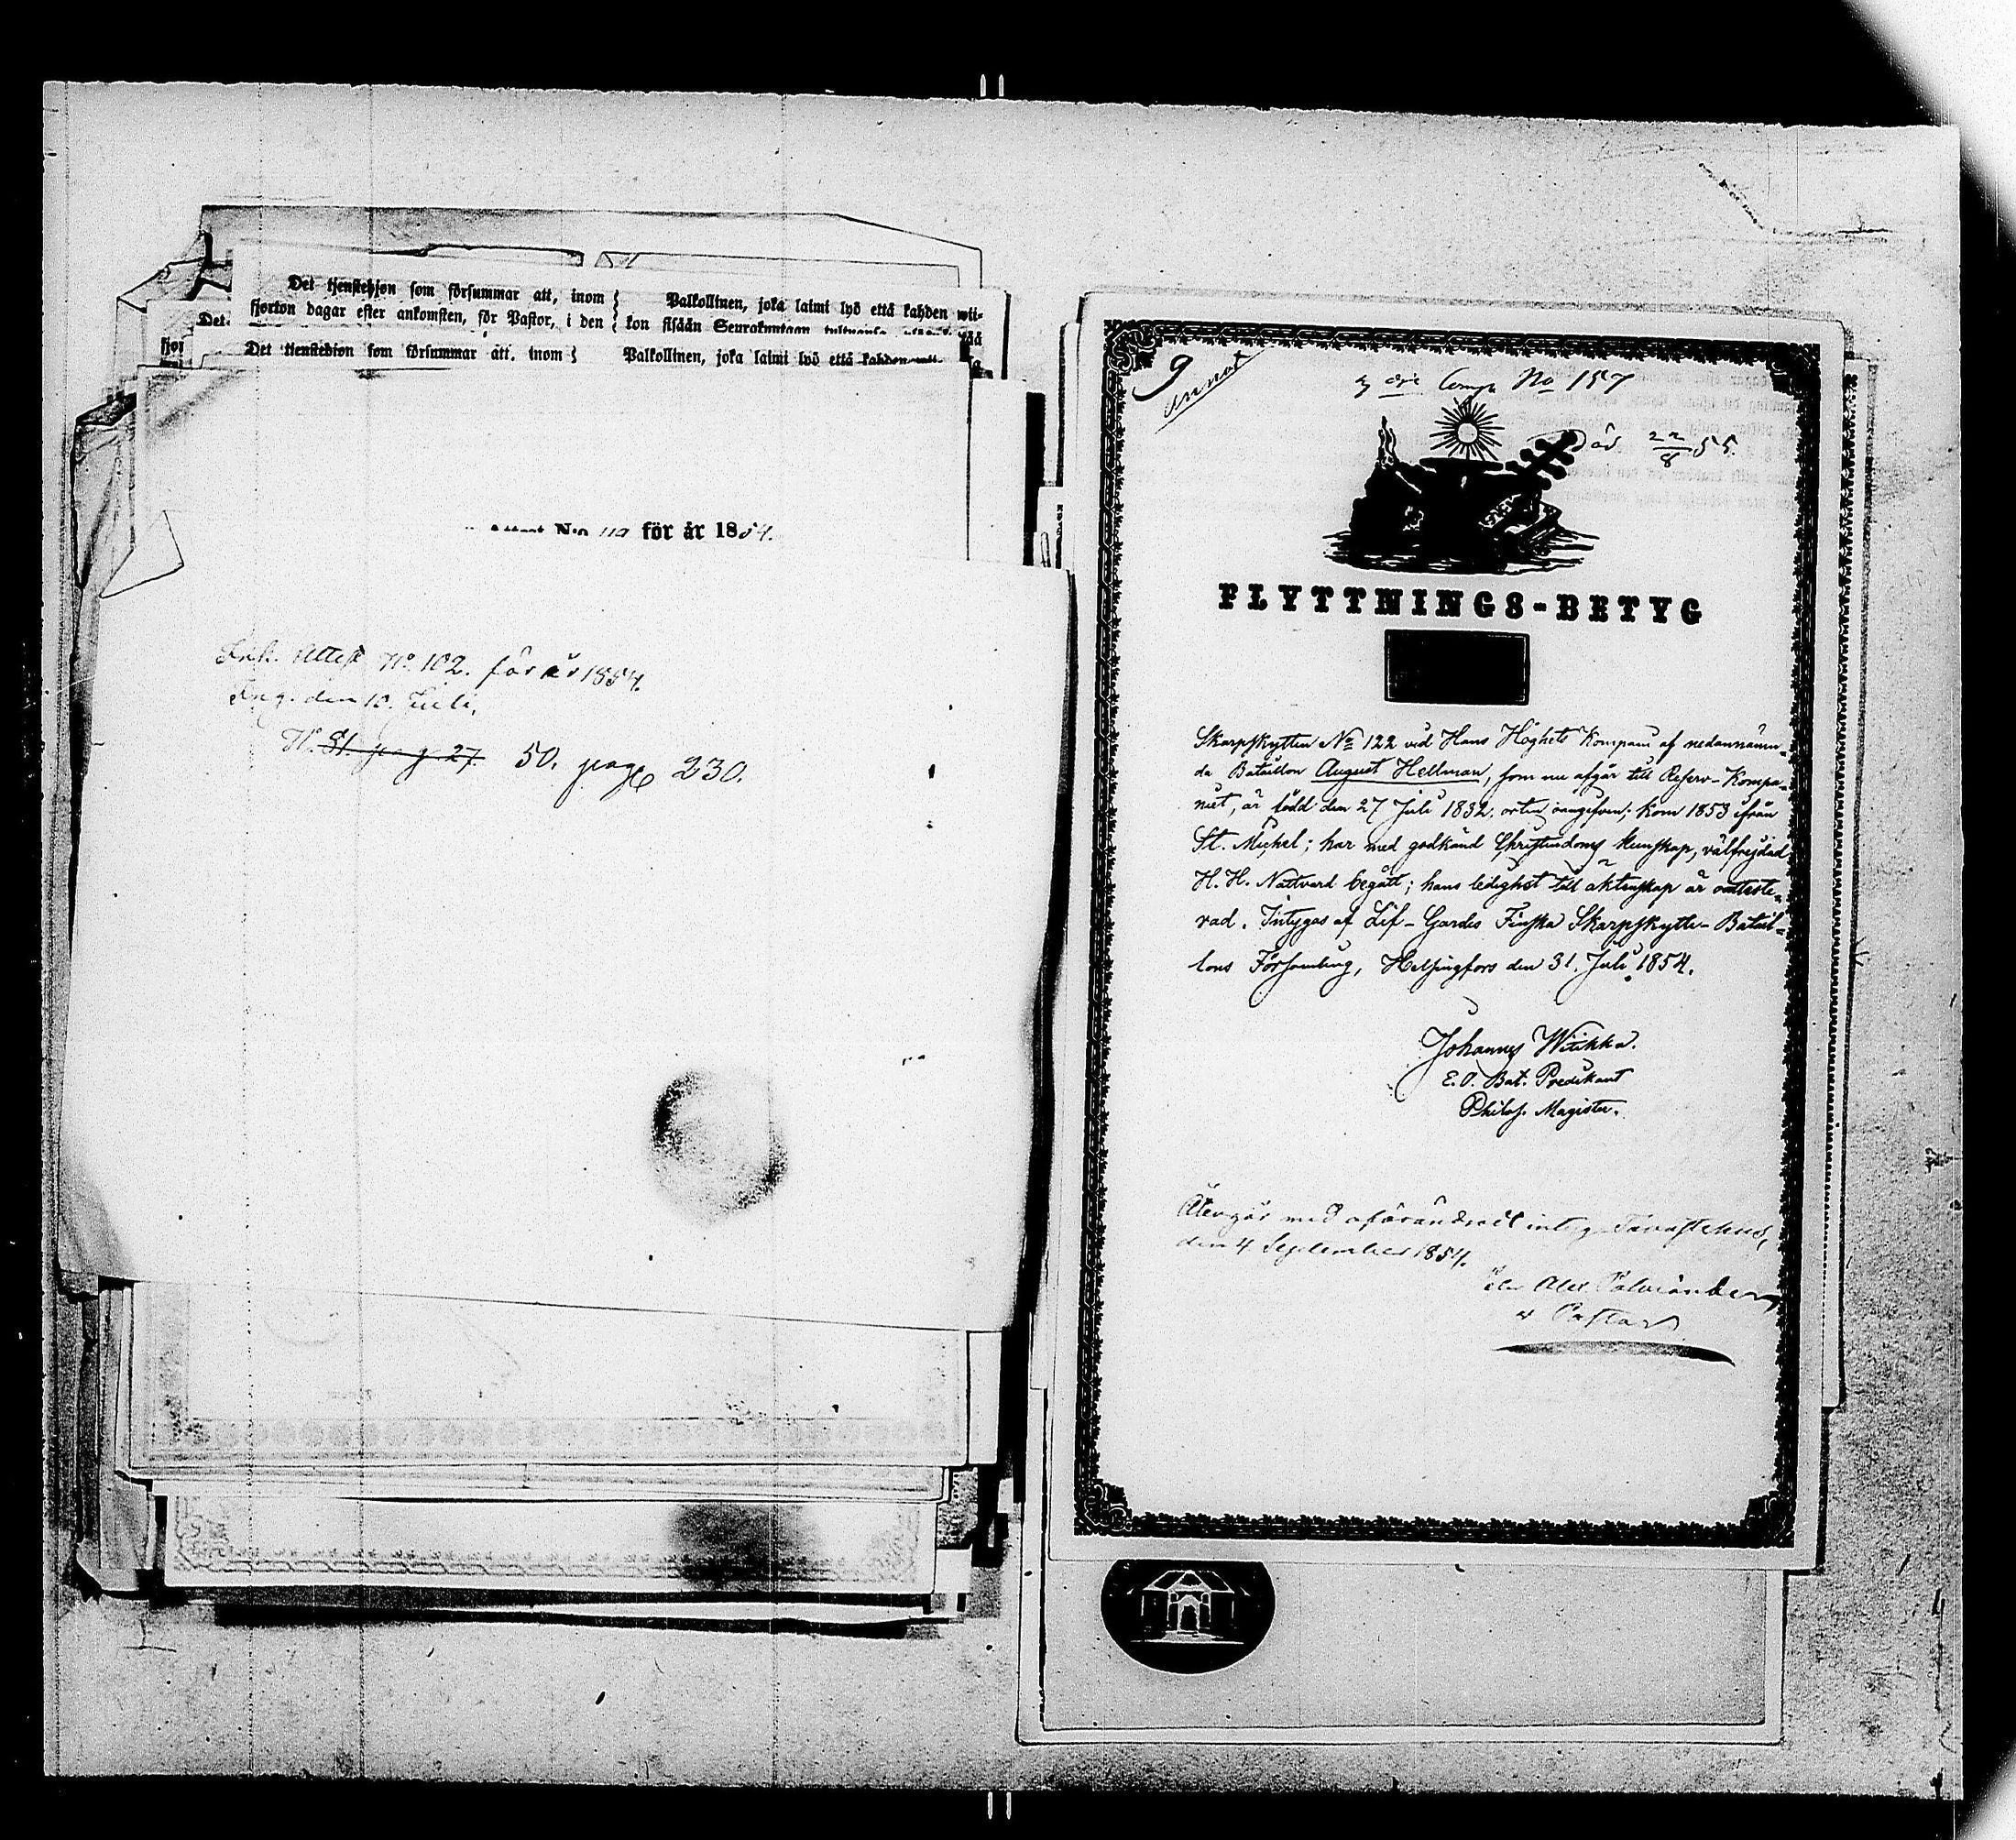 Det tjenstehjon som försummar att, inom
fjorton dagar efter ankomsten, för Pastor, i den
Palkollinen, joka laimi lyö että kahden wii-
kon sisään Seurakuntaan
Det
fjor
Det tjenstehjon som försummar att, inom
Palkollinen, joka laimi lyö että kahden
N:o 119 för år 1854.
Ink. Attest No. 102. för år 1854.
Ing. den 10. Juli.
N. 81. pag 27. 50. pag 230.
9
annot
3 dje Comp No 157
Död 22/8 55.
FLYTTNINGS-BETYG
Skarpskytten No 122 vid Hans Höghets Kompani af nedannämn-
da Bataillon August Hellman, som nu afgår till Reserv-Kompa-
niet, är född den 27 Juli 1832, orten oangifven; kom 1853 ifrån
St. Michel; har med godkänd Christendoms kunskap, välfrejdad
H. H. Nattvard begått; hans ledighet till äktenskap är oatteste-
rad. Intygas af Lif-Gardes Finska Skarpskytte-Batail-
lons Församling, Helsingfors den 31. Juli 1854.
Johannes Wiikka.
E. O. Bat. Predikant
Philos. Magister.
Återgår med oförändradt intyg Tavastehus,
den 4 September 1854.
Alex. Palviander
v Pastor